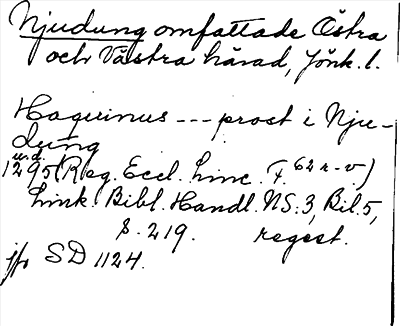 Njudung omfattade Östra
och Västra härad, Jönk. l.
Haquinus --- prost i Nju-
dung
u.d.
1295 (Reg. Eccl. Linc. f. 62 r-v)
Link. Bibl. Handl. NS: 3, Bil. 5,
s. 219. regest.
jfr SD 1124.